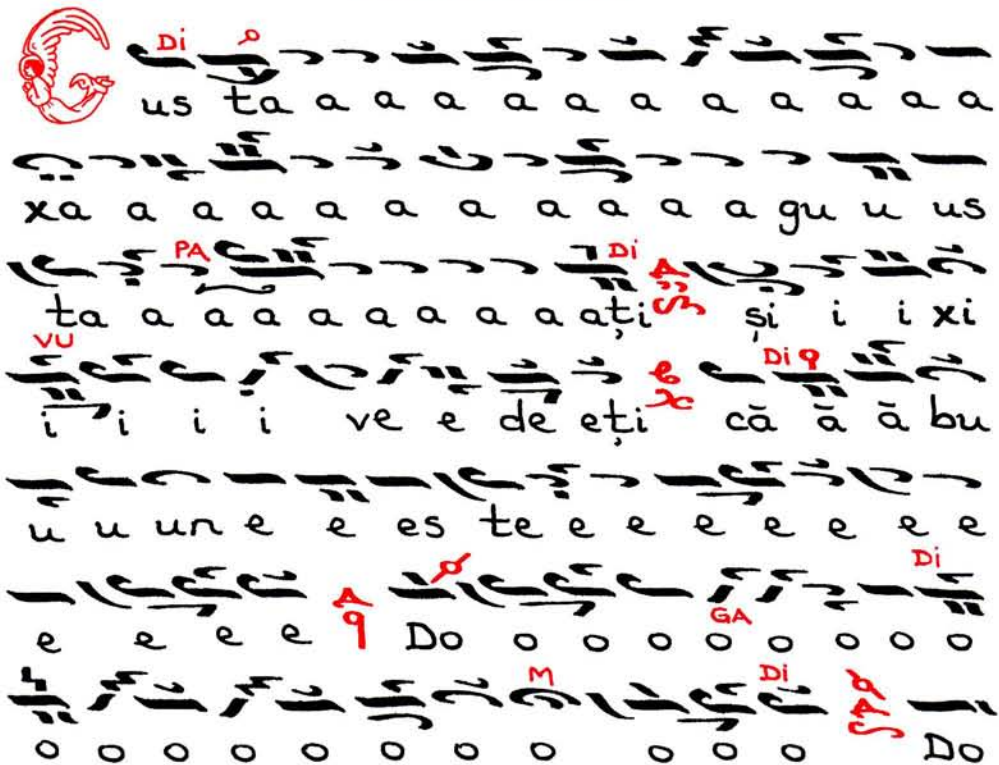 Di
us ta a a a a a a a a a a a
xa a a a a a a a a a a gu u us
PA Di
ta a a a a a a a a ați și i i xi
VU Di
i i i i ve e de eți că ă ă bu
u u un e e es te e e e e e e e
Di
GA
e e e e Do o o o o o o o o
M Di
o o o o o o o o o o o Do